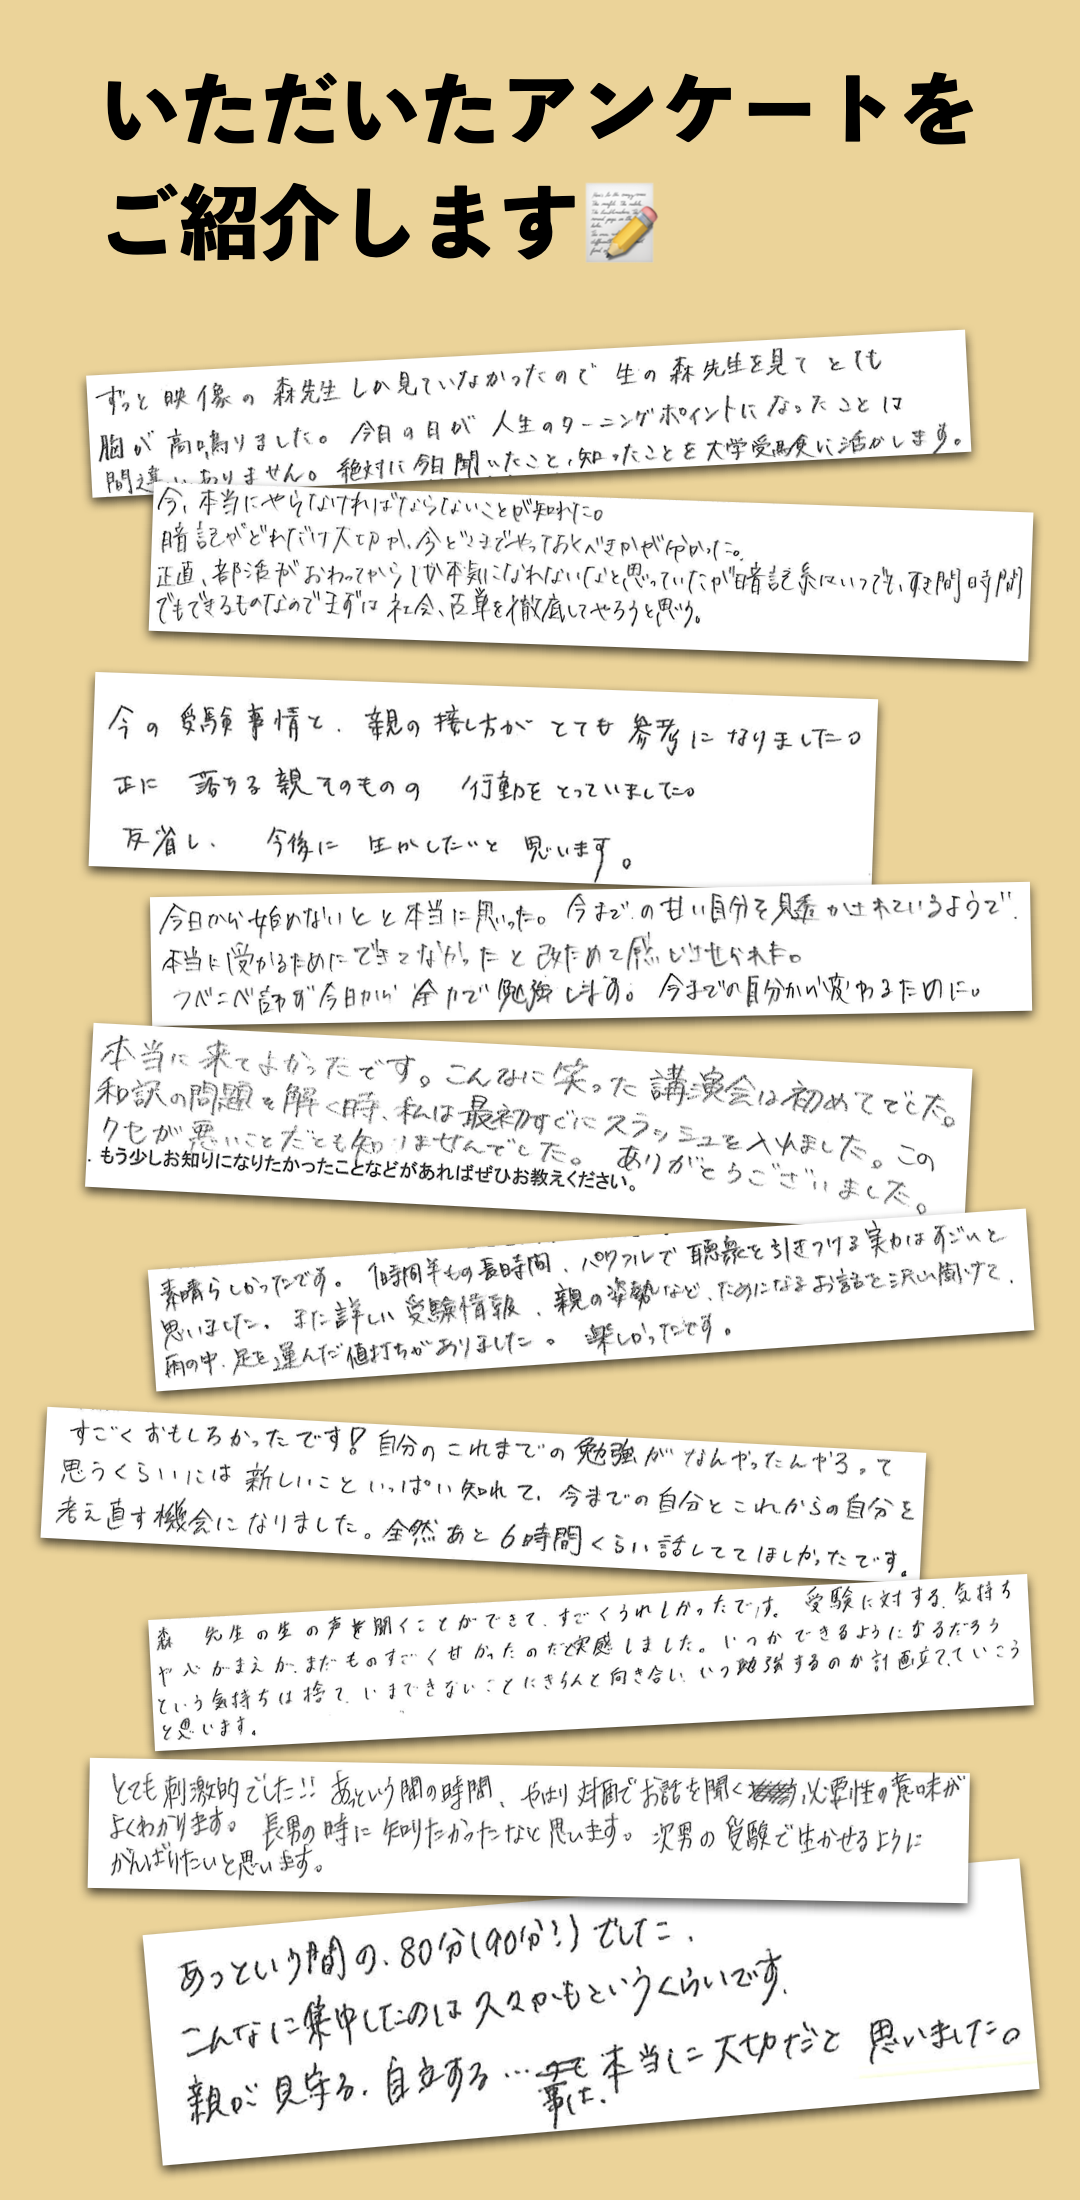 いただいたアンケートを
ご紹介します
ずっと 映像の 森先生 しか見ていなかったので 生の 森先生を見て とても
胸が 高鳴りました。今日の日が 人生のターニングポイントになったことは
間違いありません。絶対に今日聞いたこと、知ったことを大学受験に活かします。
今、本当にやらなければならないことが知れた。
暗記がどれだけ大切か、今どこまでやっておくべきかが分かった。
正直、部活がおわってからしか本気になれないなと思っていたが暗記系はいつでも、すき間時間
でもできるものなのでまずは 社会、英単を徹底してやろうと思う。
今の 受験事情と、親の接し方が とても 参考に なりました。
正に 落ちる親そのものの 行動を とっていました。
反省し、 今後に 生かしたいと 思います。
今日から始めないとと本当に思った。今までの甘い自分を見透かされているようで、
本当に受かるためにできてなかったと改ためて感じさせられた。
つべこべ言わず今日から 全力で勉強します。今までの自分から変わるために。
本当に来てよかったです。こんなに笑った講演会は初めてでした。
和訳の問題を解く時、私は最初すぐにスラッシュを入れました。この
クセが悪いことだとも知りませんでした。 ありがとうございました。
. もう少しお知りになりたかったことなどがあればぜひお教えください。
素晴らしかったです。1時間半もの長時間、パワフルで聴衆を引きつける実力はすごいと
思いました。また詳しい受験情報、親の姿勢など、ためになるお話を沢山聞けて、
雨の中、足を運んだ値打ちがありました。 楽しかったです。
すごくおもしろかったです! 自分のこれまでの勉強がなんやったんやろって
思うくらいには新しいこといっぱい知れて、今までの自分とこれからの自分を
考え直す機会になりました。全然あと6時間くらい話しててほしかったです。
森 先生の生の声を聞くことができて、すごくうれしかったです。受験に対する気持ち
や心がまえが、まだものすごくせかったのだと実感しました。いつかできるようになるだろう
という気持ちは捨て、いまできないことにきちんと向き合い、いつ勉強するのか計画立てていこう
と思います。
とても刺激的でした!! あっという間の時間、やはり対面でお話を聞く必要性の意味が
よくわかります。長男の時に知りたかったなと思います。次男の受験で生かせるように
がんばりたいと思います。
あっという間の、80分(90分!)でした、
こんなに集中したのは久々かもというくらいです、
親が見守る、自立する… 事は、本当に大切だと 思いました。